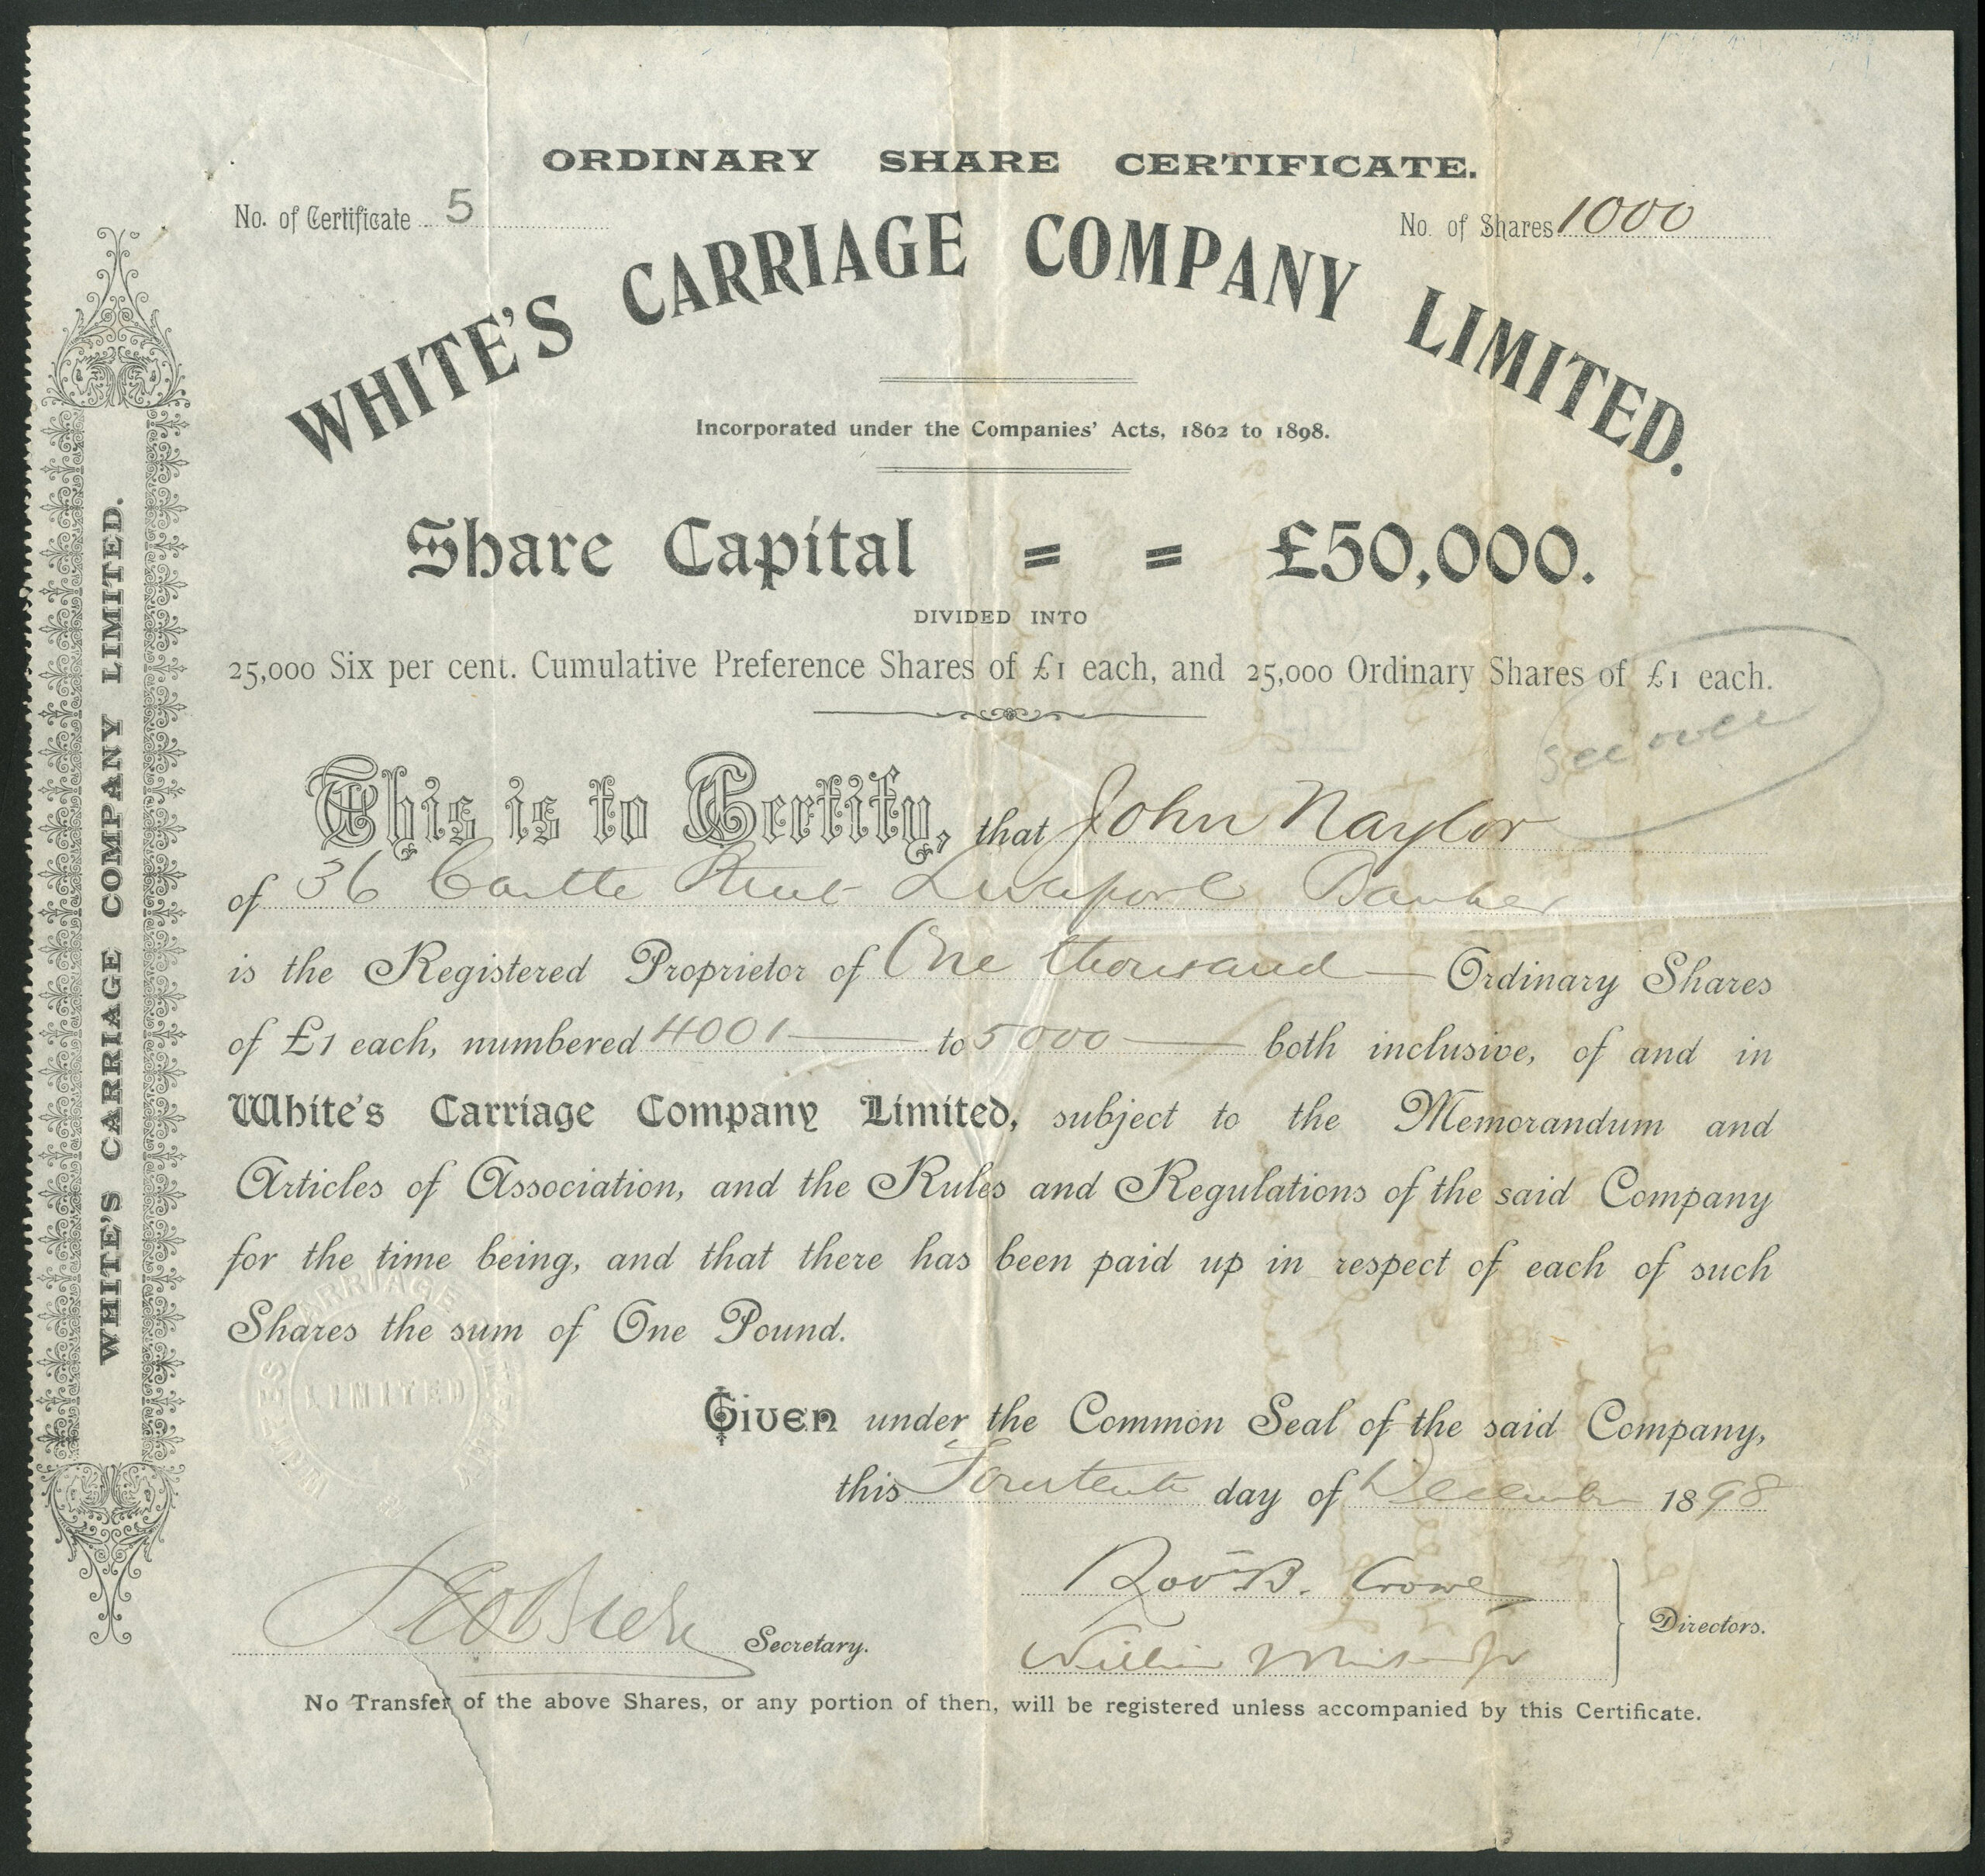 ORDINARY SHARE CERTIFICATE.
No. of Certificate 5
No. of Shares 1000
WHITE'S CARRIAGE COMPANY LIMITED.
Incorporated under the Companies' Acts, 1862 to 1898.
Share Capital = = £50,000.
DIVIDED INTO
25,000 Six per cent. Cumulative Preference Shares of £1 each, and 25,000 Ordinary Shares of £1 each.
see over
This is to Certify, that John Naylor
of 36 Castle Street Liverpool Banker
is the Registered Proprietor of One thousand Ordinary Shares
of £1 each, numbered 4001 to 5000 both inclusive, of and in
White's Carriage Company Limited, subject to the Memorandum and
Articles of Association, and the Rules and Regulations of the said Company
for the time being, and that there has been paid up in respect of each of such
Shares the sum of One Pound.
WHITES CARRIAGE COMPANY
LIMITED
Given under the Common Seal of the said Company,
this Fourteenth day of December 1898
Secretary.
Robt. B. Crowe
William
Directors.
No Transfer of the above Shares, or any portion of them, will be registered unless accompanied by this Certificate.
WHITE'S CARRIAGE COMPANY LIMITED.